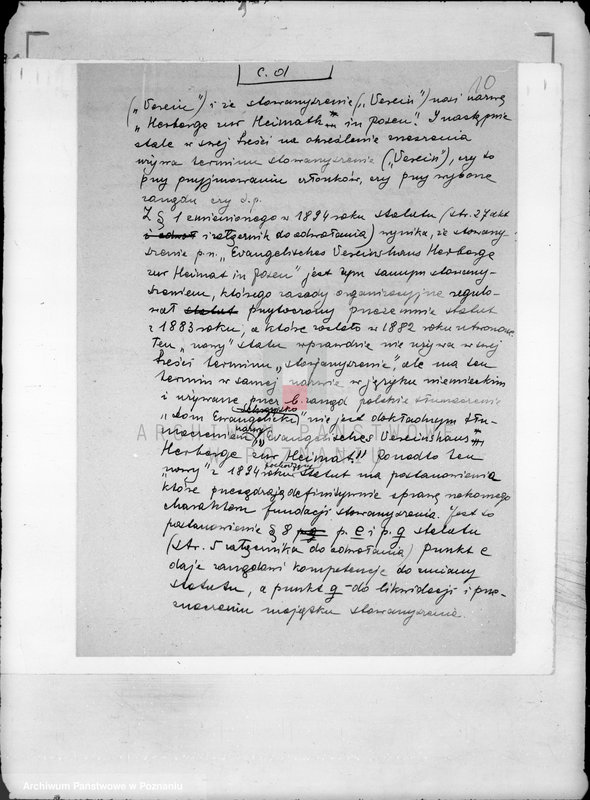 c. d
10
("Verein") i że stowarzyszenie ("Verein") nosi nazwę
"Herberge zur Heimath in Posen". I następnie
stale w swej treści na określenie zrzeszenia
używa terminu stowarzyszenie ("Verein"), czy to
przy przyjmowaniu członków, czy przy wyborze
zarządu czy t.p.
Z § 1 zmienionego w 1894 roku statutu (str. 27 akt
i załącznik do odwołania) wynika, że stowarzy-
szenie p.n. "Evangelisches Vereinshaus Herberge
zur Heimat in Posen" jest tym samym stowarzy-
szeniem, którego zasady organizacyjne regulo-
wał statut przytoczony przeze mnie statut
z 1883 roku, a które zostało w 1882 roku utworzone.
Ten "nowy" statut wprawdzie nie używa w swej
treści terminu "stowarzyszenie", ale ma ten
termin w samej nazwie w języku niemieckim
i używane przez b. zarząd polskie tłumaczenie
"Dom Ewangelicki" nie jest dokładnym tłu-
maczeniem nazwy "Evangelisches Vereinshaus
Herberge zur Heimat". Ponadto ten
"nowy" z 1894 roku statut ma postanowienia
które przesądzają definitywnie sprawę rzekomego
charakteru fundacji stowarzyszenia. Jest to
postanowienie § 8 p. e i p. g statutu
(str. 5 załącznika do odwołania) punkt e
daje zarządowi kompetencje do zmiany
statutu, a punkt g - do likwidacji i prze-
znaczenia majątku stowarzyszenia.
ARCHIWUM PAŃSTWOWE
W POZNANIU
Archiwum Państwowe w Poznaniu